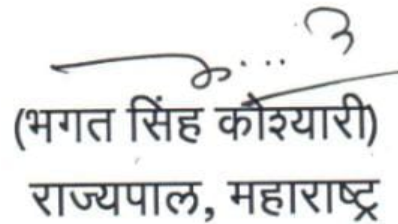 (भगत सिंह कोश्यारी)
राज्यपाल, महाराष्ट्र